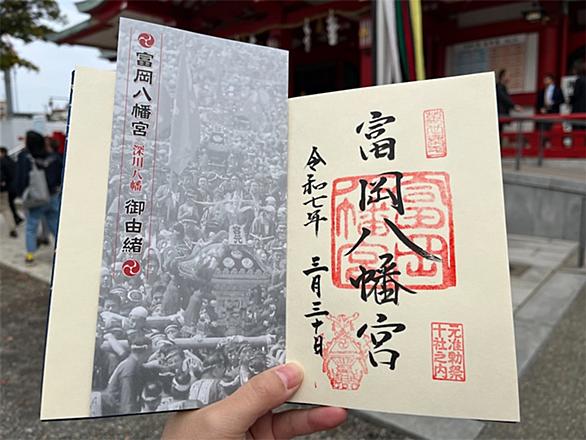 富岡八幡宮
深川八幡
御由緒
富岡八幡宮
令和七年
三月三十日
富岡
八幡宮
元准勅祭
十社之内